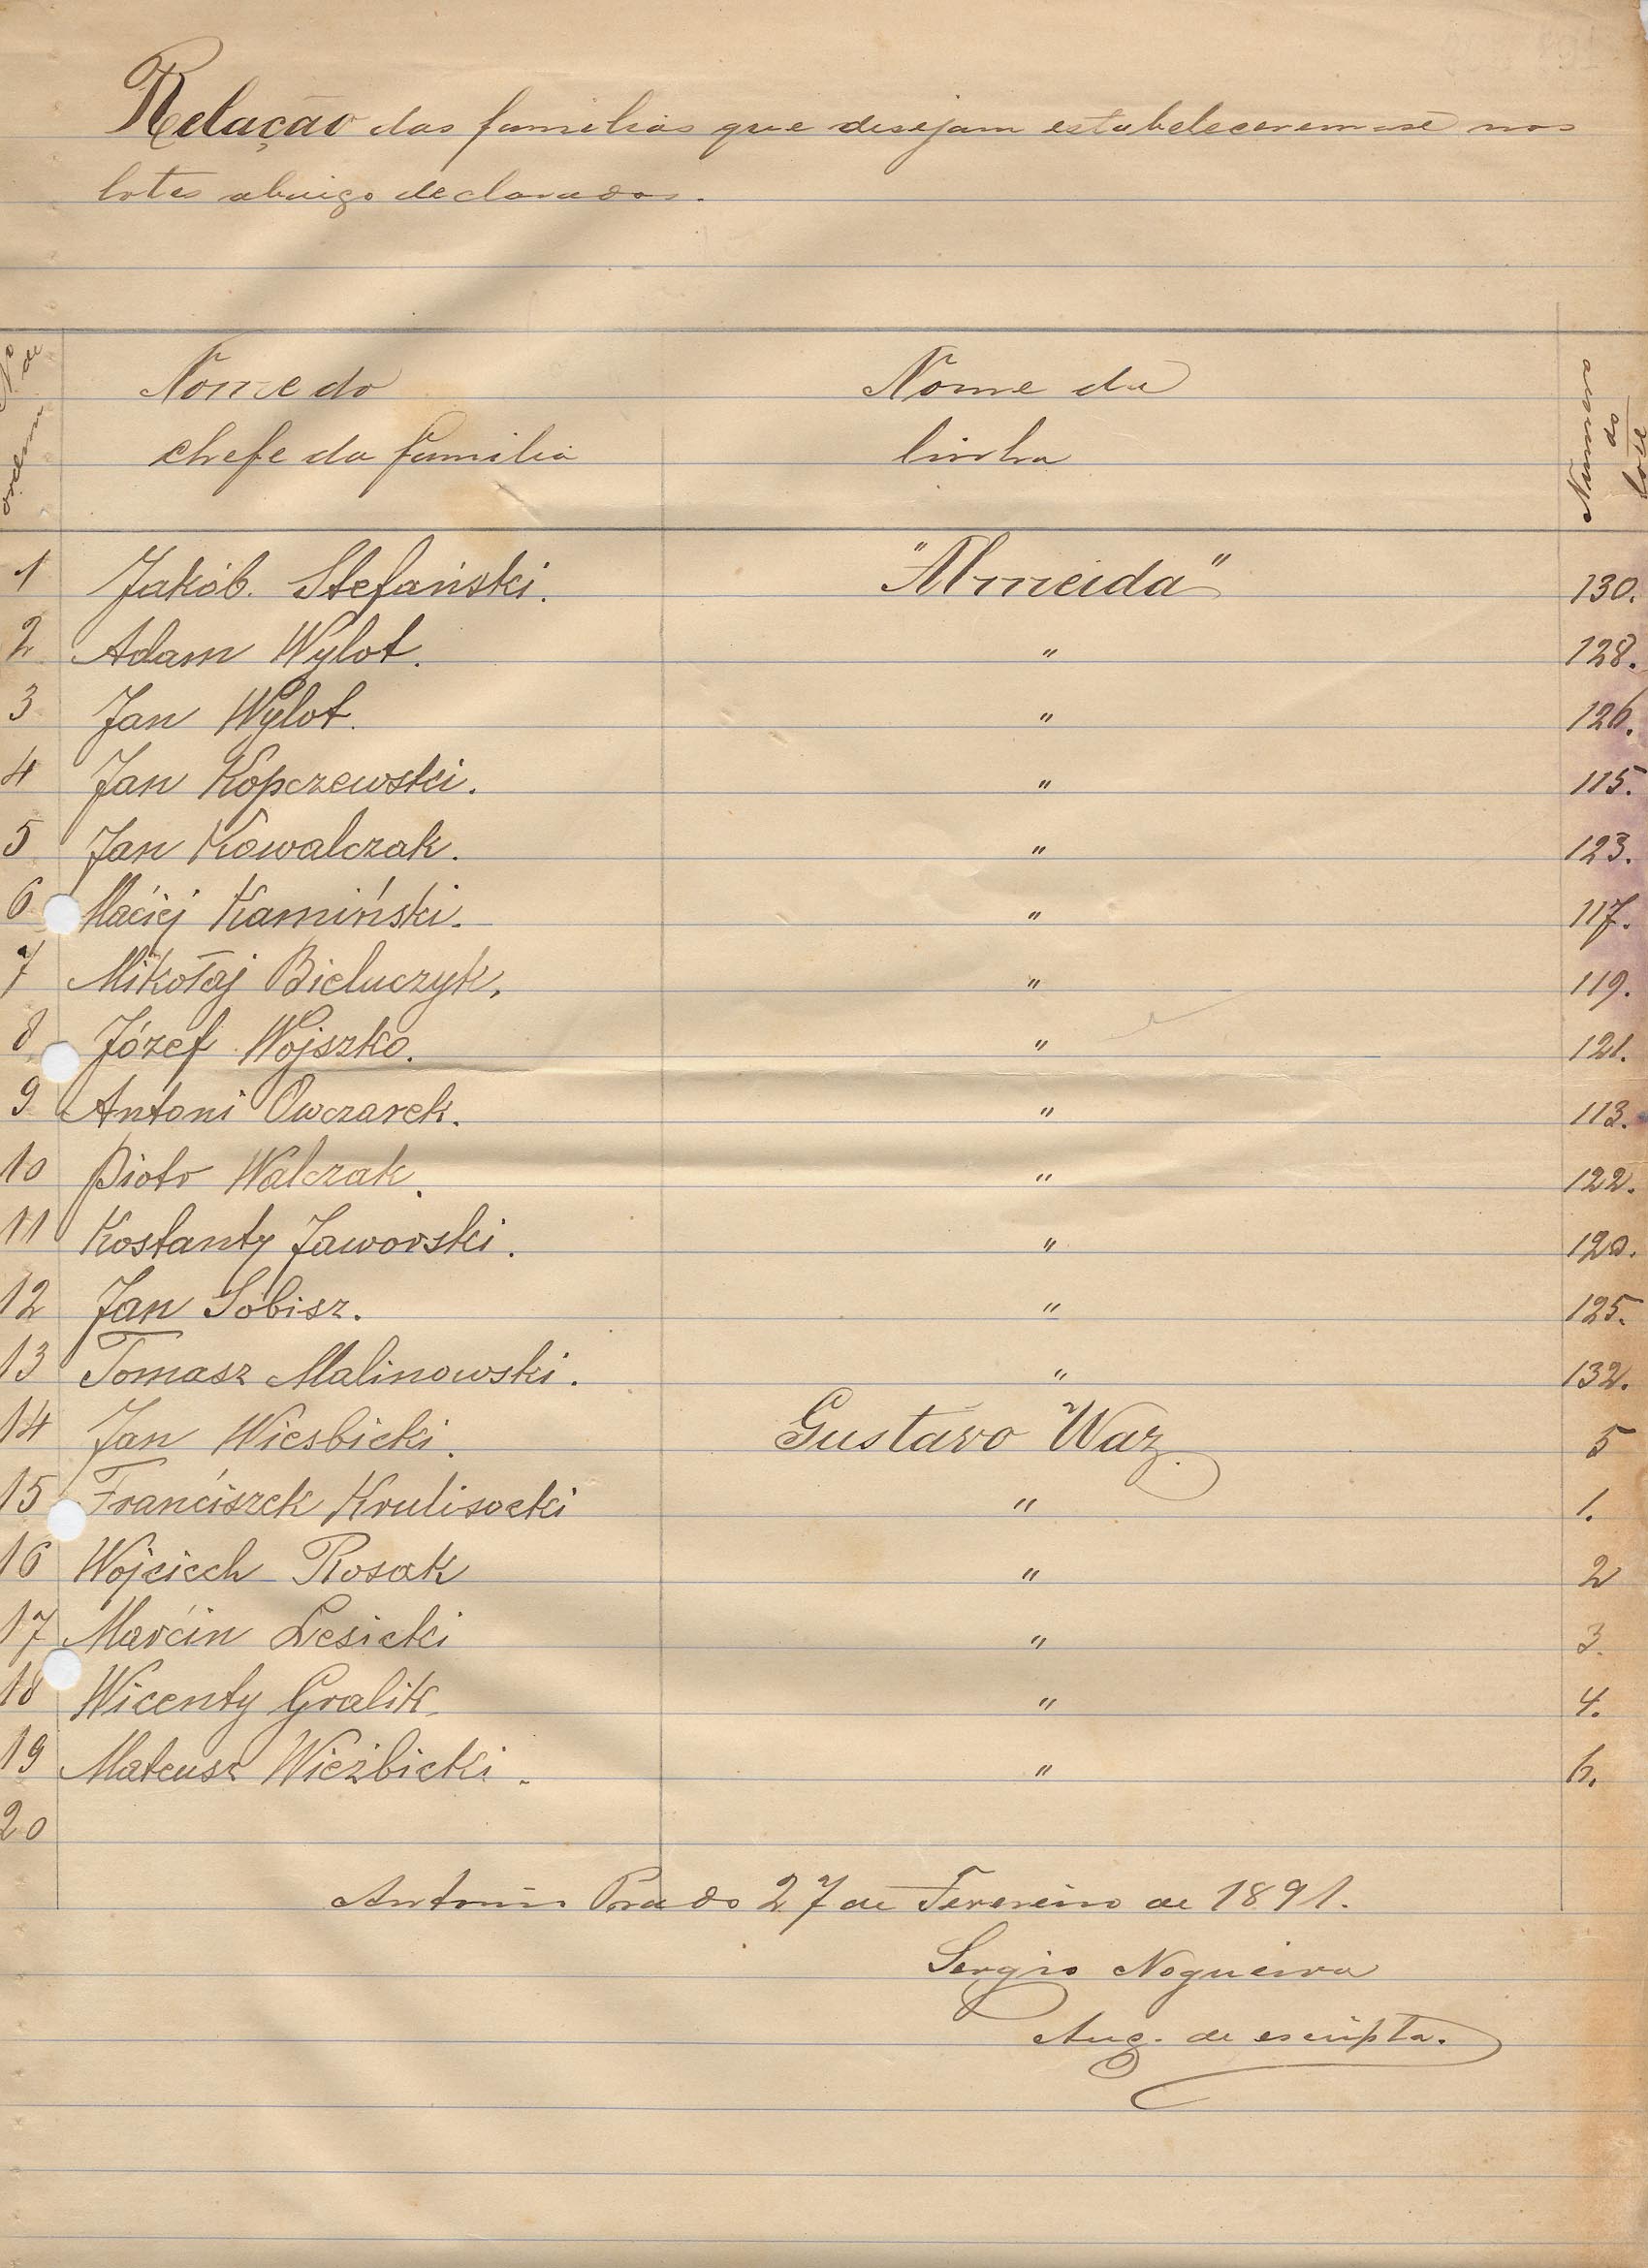 Relação das familias que desejam estabelecerem-se nos
lotes abaixo declarados.
Nº de ordem
Nome do
chefe da familia
Nome da
linha
Numero do lote
1 Jakób. Stefański. "Almeida" 130.
2 Adam Wylot. " 128.
3 Jan Wylot. " 126.
4 Jan Kopczewski. " 115.
5 Jan Kowalczak. " 123.
6 Maciej Kamiński. " 117.
7 Mikołaj Bieluczyk. " 119.
8 Józef Wojszko. " 121.
9 Antoni Owczarek. " 113.
10 Piotr Walczak. " 122.
11 Kostanty Jaworski. " 120.
12 Jan Sobisz. " 125.
13 Tomasz Malinowski. " 132.
14 Jan Wiesbicki. Gustavo Waz. 5
15 Franciszek Krulisocki " 1.
16 Wojciech Rosak " 2
17 Marcin Lesicki " 3.
18 Wicenty Gralik. " 4.
19 Mateusz Wieżbicki. " 6.
20
Antonio Prado 27 de Fevereiro de 1891.
Sergio Nogueira
Aux. de escripta.